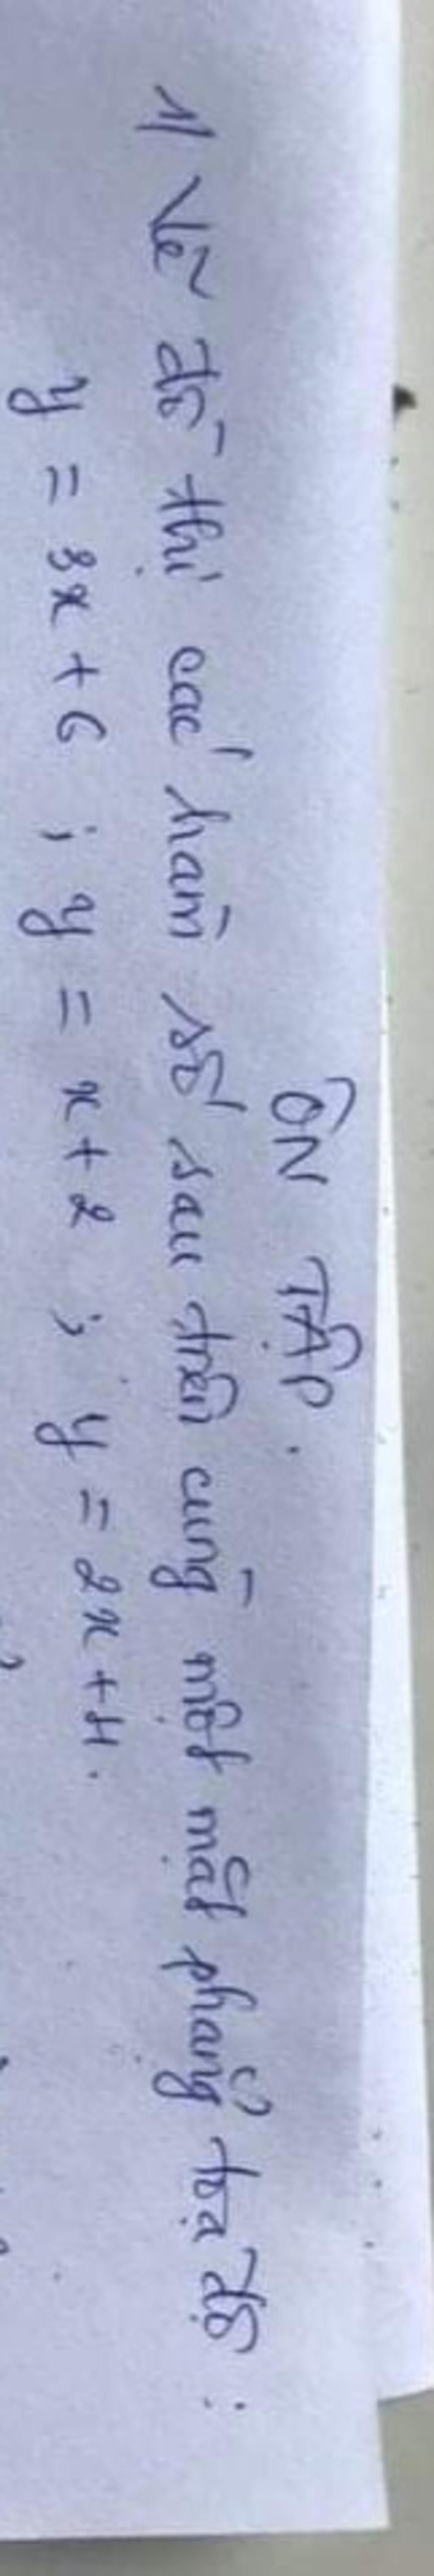 ÔN TẬP.
1/ Vẽ đồ thị các hàm số sau trên cùng một mặt phẳng tọa độ:
y = 3x + 6 ; y = x + 2 ; y = 2x + 4.